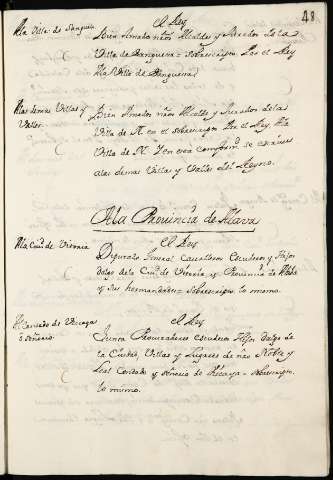 48
A la Villa de Sanguesa
El Rey
Bien Amados nr̃os Alcalde y Jurados de la
Villa de Sanguesa = Sobrescripto. Por el Rey
A la Villa de Sanguesa
A las demas Villas y
Valles
Bien Amados nr̃os Alcalde y Jurados de la
Villa de N. en el sobrescripto Por el Rey, A la
Villa de N. Y en esta conform.d se escrive
a las demas Villas y Valles del Reyno.
A la Provincia de Alava
A la Ciu.d de Vitoria
El Rey
Diputado General Cavalleros Escuderos Hijos
dalgo de la Ciu.d de Vitoria y Provincia de Alaba
y sus hermandades = Sobrescripto lo mismo.
Al Condado de Vizcaya
ò Señorio
El Rey
Junta Procuradores Escuderos Hijos dalgo de
la Ciudad, Villas y Lugares de nr̃o Noble y
Leal Condado y Señorio de Vizcaya = Sobrescripto.
lo mismo.